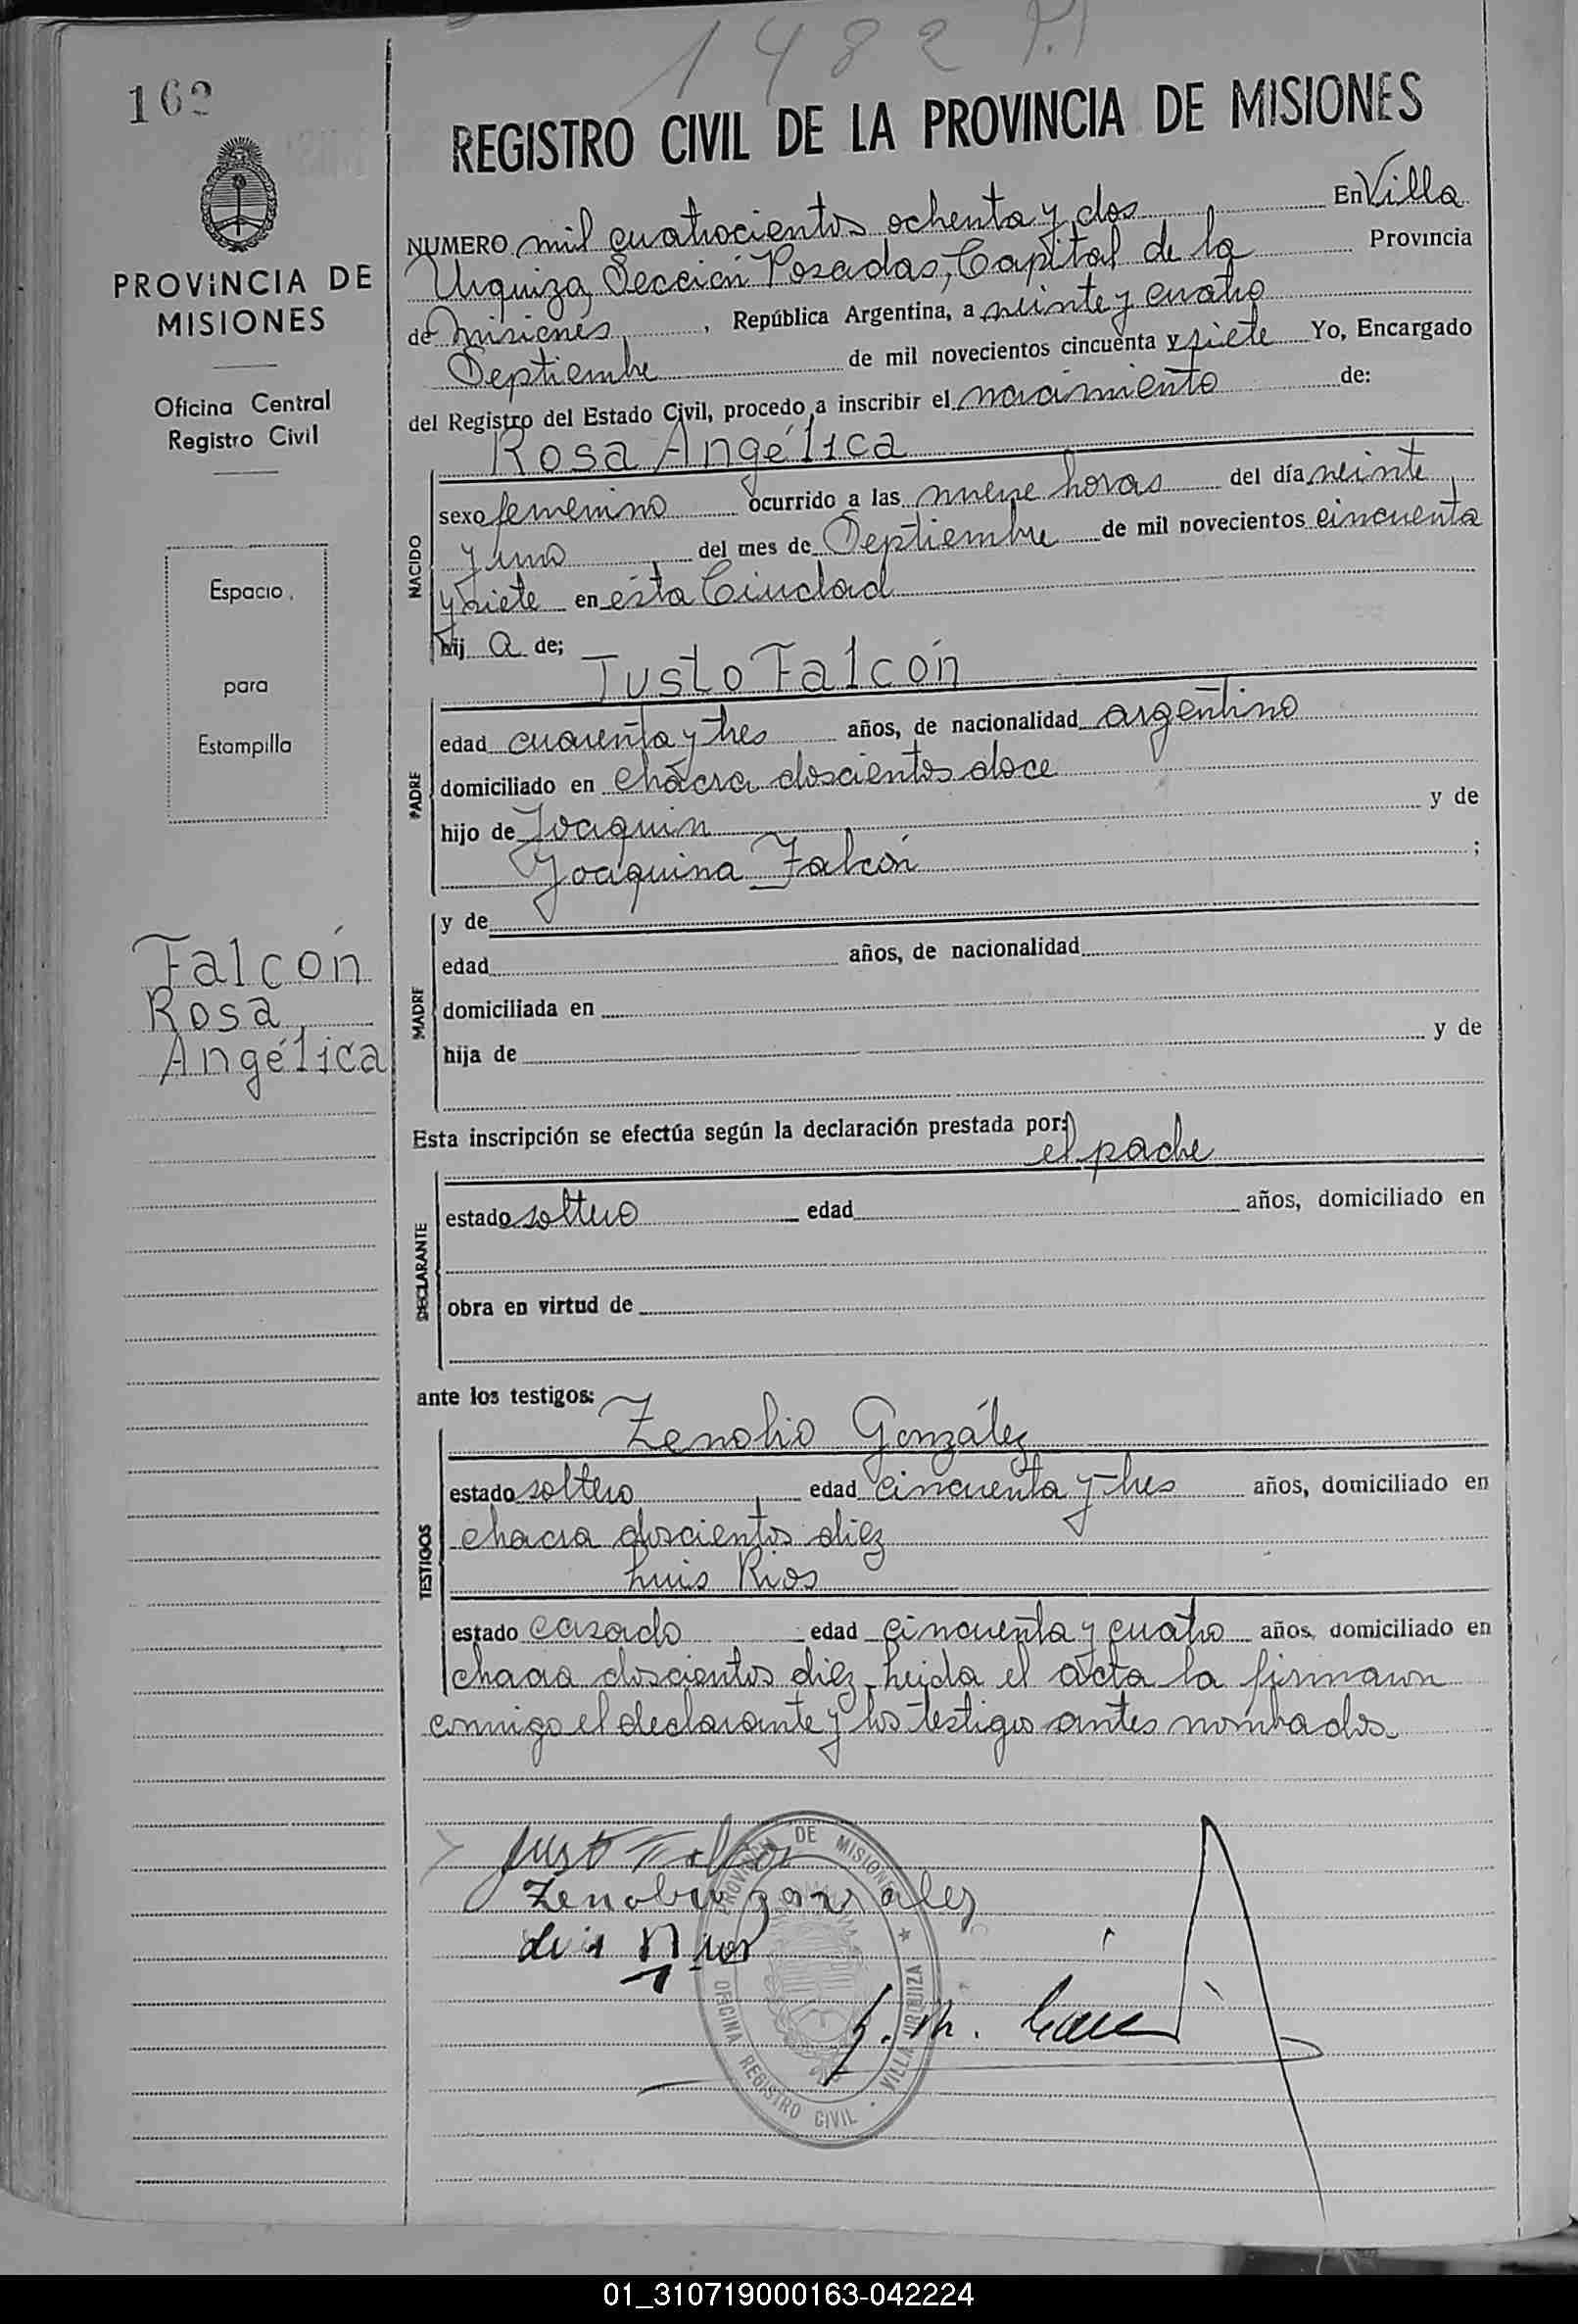 1482
162
REGISTRO CIVIL DE LA PROVINCIA DE MISIONES
PROVINCIA DE
MISIONES
Oficina Central
Registro Civil
Espacio
para
Estampilla
Falcón
Rosa
Angélica
NUMERO mil cuatrocientos ochenta y dos En Villa
Urquiza, Sección Posadas, Capital de la Provincia
de Misiones, República Argentina, a veinte y cuatro
Septiembre de mil novecientos cincuenta y siete Yo, Encargado
del Registro del Estado Civil, procedo a inscribir el nacimiento de:
Rosa Angélica
NACIDO
sexo femenino ocurrido a las nueve horas del día veinte
y uno del mes de Septiembre de mil novecientos cincuenta
y siete en ésta Ciudad
hij a de;
Justo Falcón
PADRE
edad cuarenta y tres años, de nacionalidad argentino
domiciliado en chacra doscientos doce
hijo de Joaquin y de
Joaquina Falcón ;
MADRE
y de
edad años, de nacionalidad
domiciliada en
hija de y de
Esta inscripción se efectúa según la declaración prestada por:
el padre
DECLARANTE
estado soltero edad años, domiciliado en
obra en virtud de
ante los testigos:
Zenobio González
TESTIGOS
estado soltero edad cincuenta y tres años, domiciliado en
chacra doscientos diez
Luis Rios
estado casado edad cincuenta y cuatro años, domiciliado en
chacra doscientos diez. Leida el acta la firmaron
conmigo el declarante y los testigos antes nombrados.
Justo Falcon
Zenobio gonzales
Luis Rios
PROVINCIA DE MISIONES
OFICINA REGISTRO CIVIL · VILLA URQUIZA
01_310719000163-042224